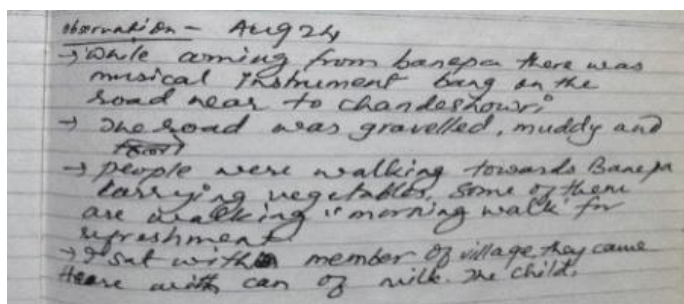 observation - Aug 24
→ while coming from banepa there was
musical instrument bang on the
road near to chandeshowri.
→ The road was gravelled, muddy and
→ people were walking towards Banepa
carrying vegetables. Some of them
are walking "morning walk" for
refreshment.
→ I sat with member of village they came
with can of milk. The child.